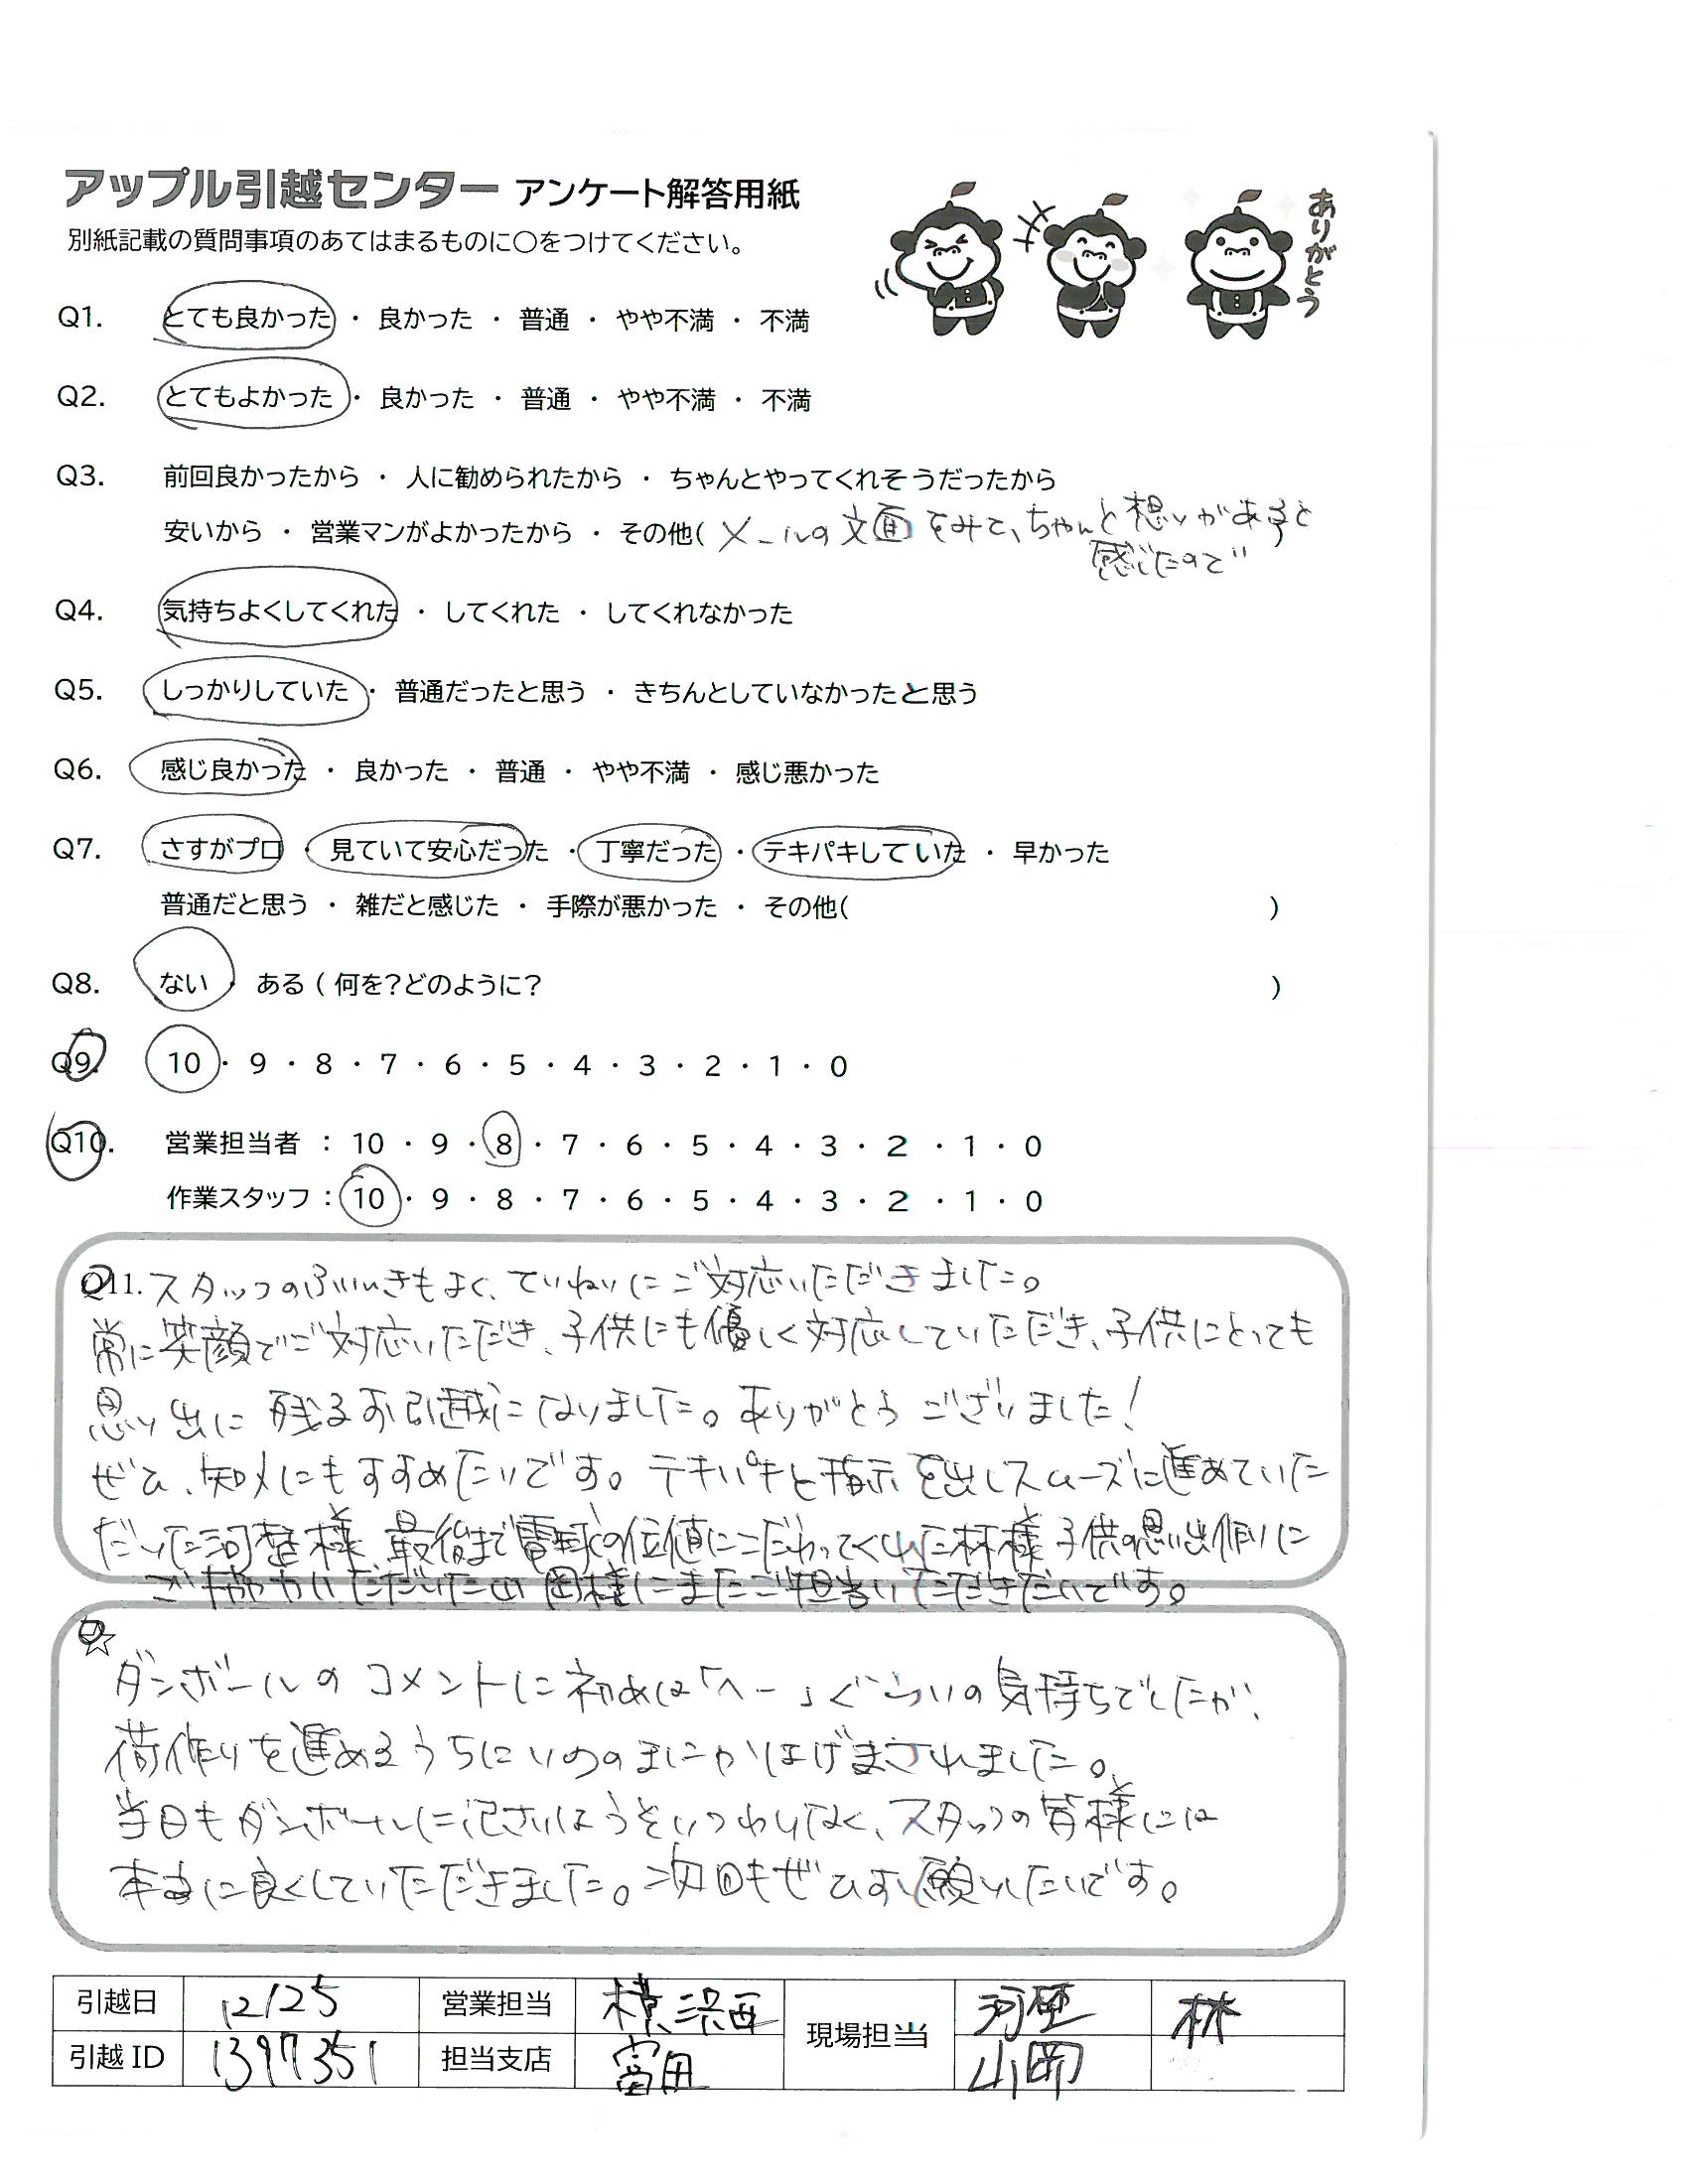 アップル引越センター アンケート解答用紙
ありがとう
別紙記載の質問事項のあてはまるものに○をつけてください。
Q1. とても良かった ・ 良かった ・ 普通 ・ やや不満 ・ 不満
Q2. とてもよかった ・ 良かった ・ 普通 ・ やや不満 ・ 不満
Q3. 前回良かったから ・ 人に勧められたから ・ ちゃんとやってくれそうだったから
安いから ・ 営業マンがよかったから ・ その他( メールの文面をみて、ちゃんと想いがあると )
感じたので
Q4. 気持ちよくしてくれた ・ してくれた ・ してくれなかった
Q5. しっかりしていた ・ 普通だったと思う ・ きちんとしていなかったと思う
Q6. 感じ良かった ・ 良かった ・ 普通 ・ やや不満 ・ 感じ悪かった
Q7. さすがプロ ・ 見ていて安心だった ・ 丁寧だった ・ テキパキしていた ・ 早かった
普通だと思う ・ 雑だと感じた ・ 手際が悪かった ・ その他( )
Q8. ない ・ ある ( 何を?どのように? )
Q9. 10 ・ 9 ・ 8 ・ 7 ・ 6 ・ 5 ・ 4 ・ 3 ・ 2 ・ 1 ・ 0
Q10. 営業担当者 : 10 ・ 9 ・ 8 ・ 7 ・ 6 ・ 5 ・ 4 ・ 3 ・ 2 ・ 1 ・ 0
作業スタッフ : 10 ・ 9 ・ 8 ・ 7 ・ 6 ・ 5 ・ 4 ・ 3 ・ 2 ・ 1 ・ 0
Q11. スタッフのふいんきもよく、ていねいにご対応いただきました。
常に笑顔でご対応いただき、子供にも優しく対応していただき、子供にとっても
思い出に残るお引越になりました。ありがとうございました!
ぜひ、知人にもすすめたいです。テキパキと指示を出しスムーズに進めていた
だいた河 様、最後まで電球の位値にこだわってくれた林様、子供の思い出作りに
ご協力いただいた山岡様にまたご担当いただきたいです。
☆
ダンボールのコメントに初めは「へー」ぐらいの気持ちでしたが、
荷作りを進めるうちにいつのまにかはげまされました。
当日もダンボールに記さいはうそいつわりなく、スタッフの皆様には
本当に良くしていただきました。次回もぜひお願いしたいです。
引越日 12/25 営業担当 横浜西 現場担当 河 林
引越ID 1397351 担当支店 富田 山岡